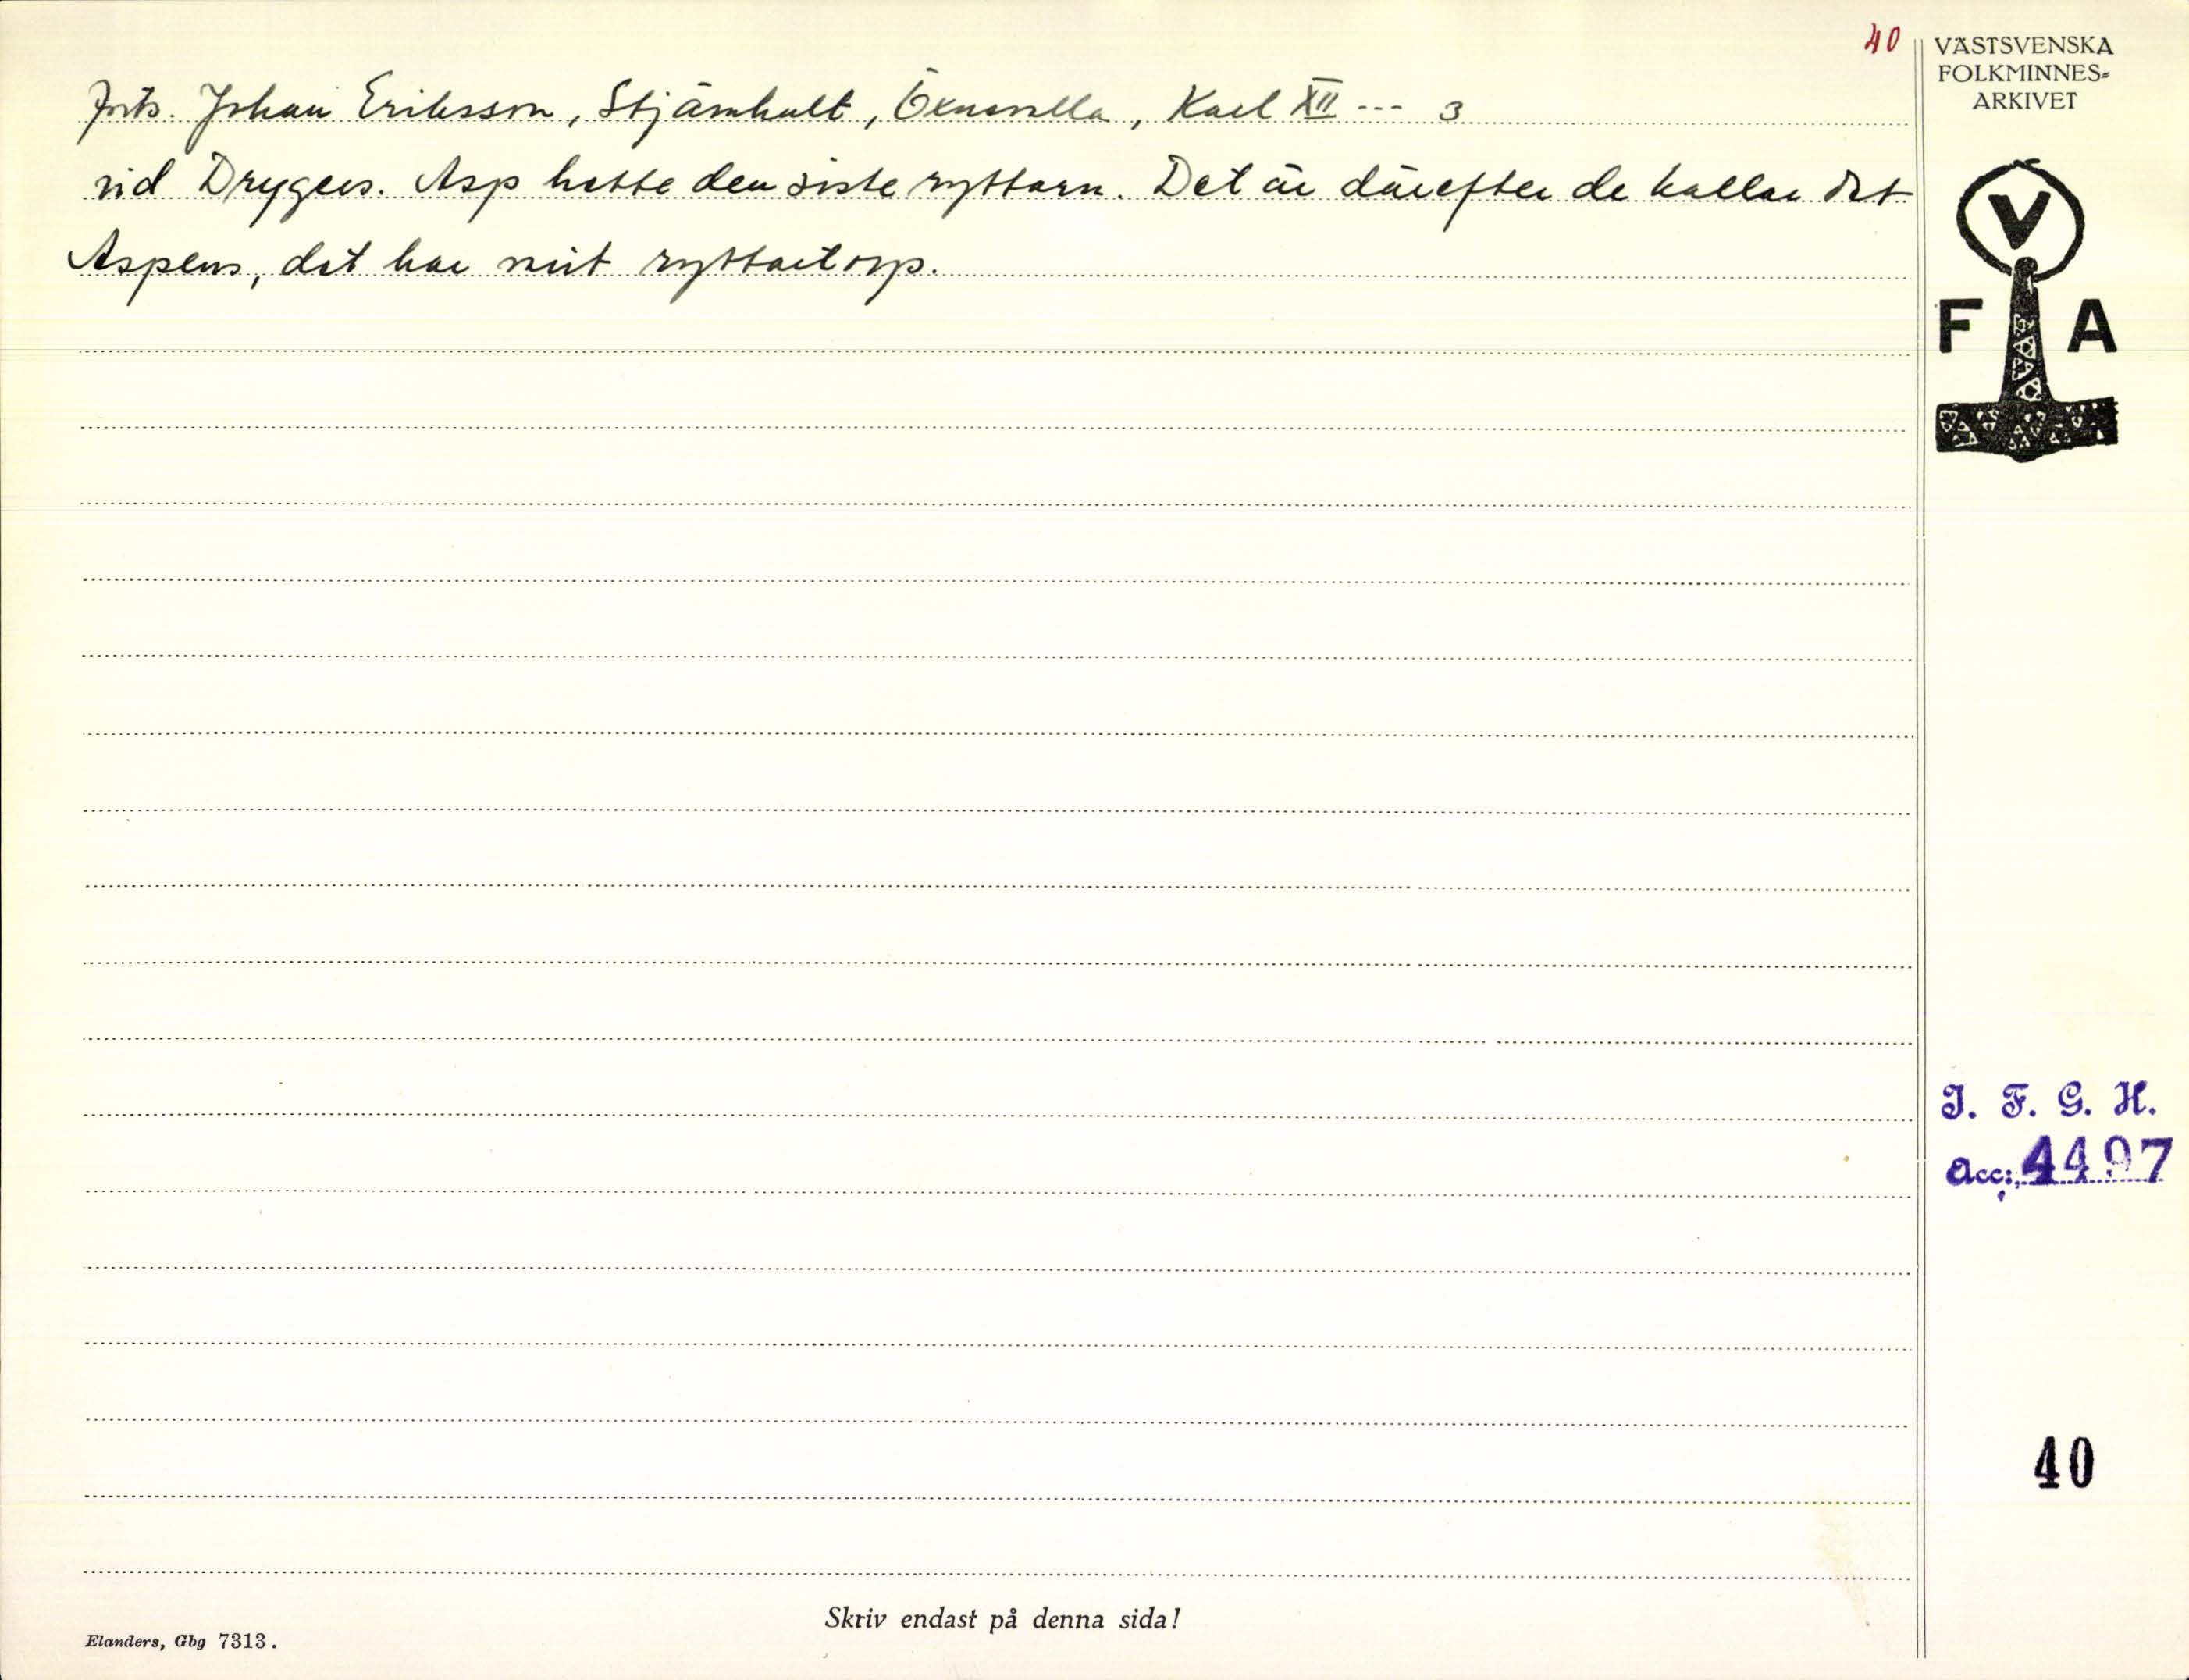 40
VÄSTSVENSKA
FOLKMINNES-
ARKIVET
Forts. Johan Eriksson, Stjärnhult, Öxnevalla, Karl XII --- 3
vid Drygers. Asp hette den siste ryttarn. Det är därefter de kallar det
Aspens, det har vart ryttartorp.
V
F A
I. F. G. H.
Acc: 4497
40
Skriv endast på denna sida!
Elanders, Gbg 7313.